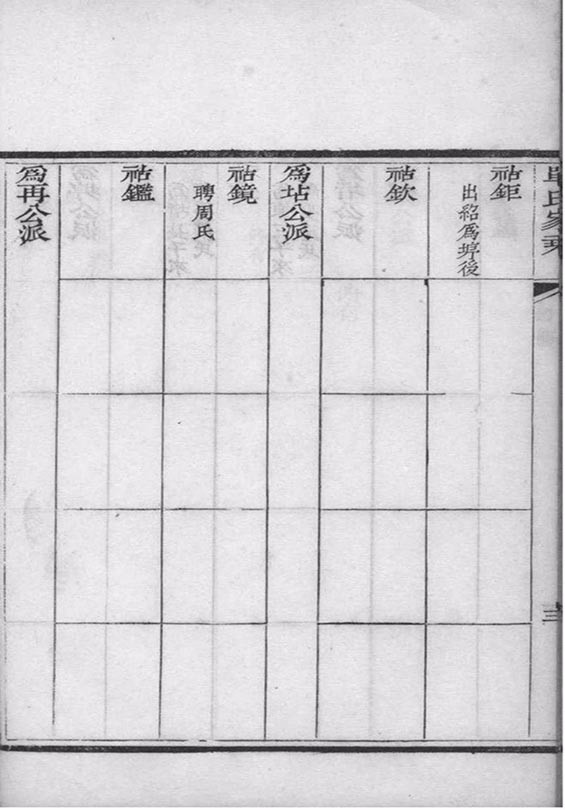 氏家乘
祐鉅
出紹爲埻後
祐欽
爲坫公派
祐鏡
聘周氏
祐鑑
爲再公派